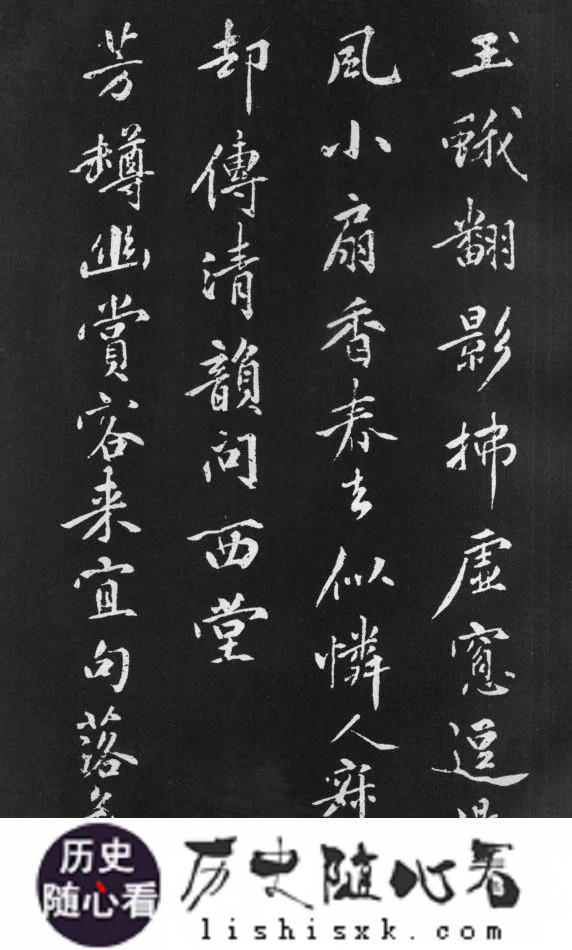 玉蛾翻影拂虛窻逗
風小扇香春去似憐人寂
却傳清韻問西堂
芳樽幽賞客来宜句落
历史
随心看
历史随心看
lishisxk.com